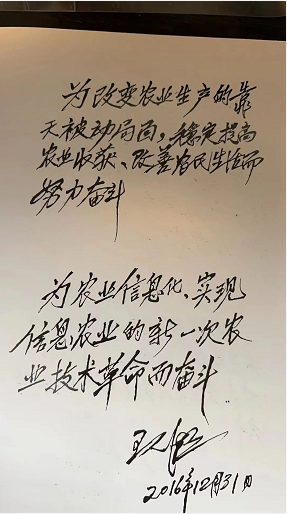 为改变农业生产的靠
天被动局面，稳定提高
农业收获、改善农民生活而
努力奋斗
为农业信息化、实现
信息农业的新一次农
业技术革命而奋斗
2016年12月31日